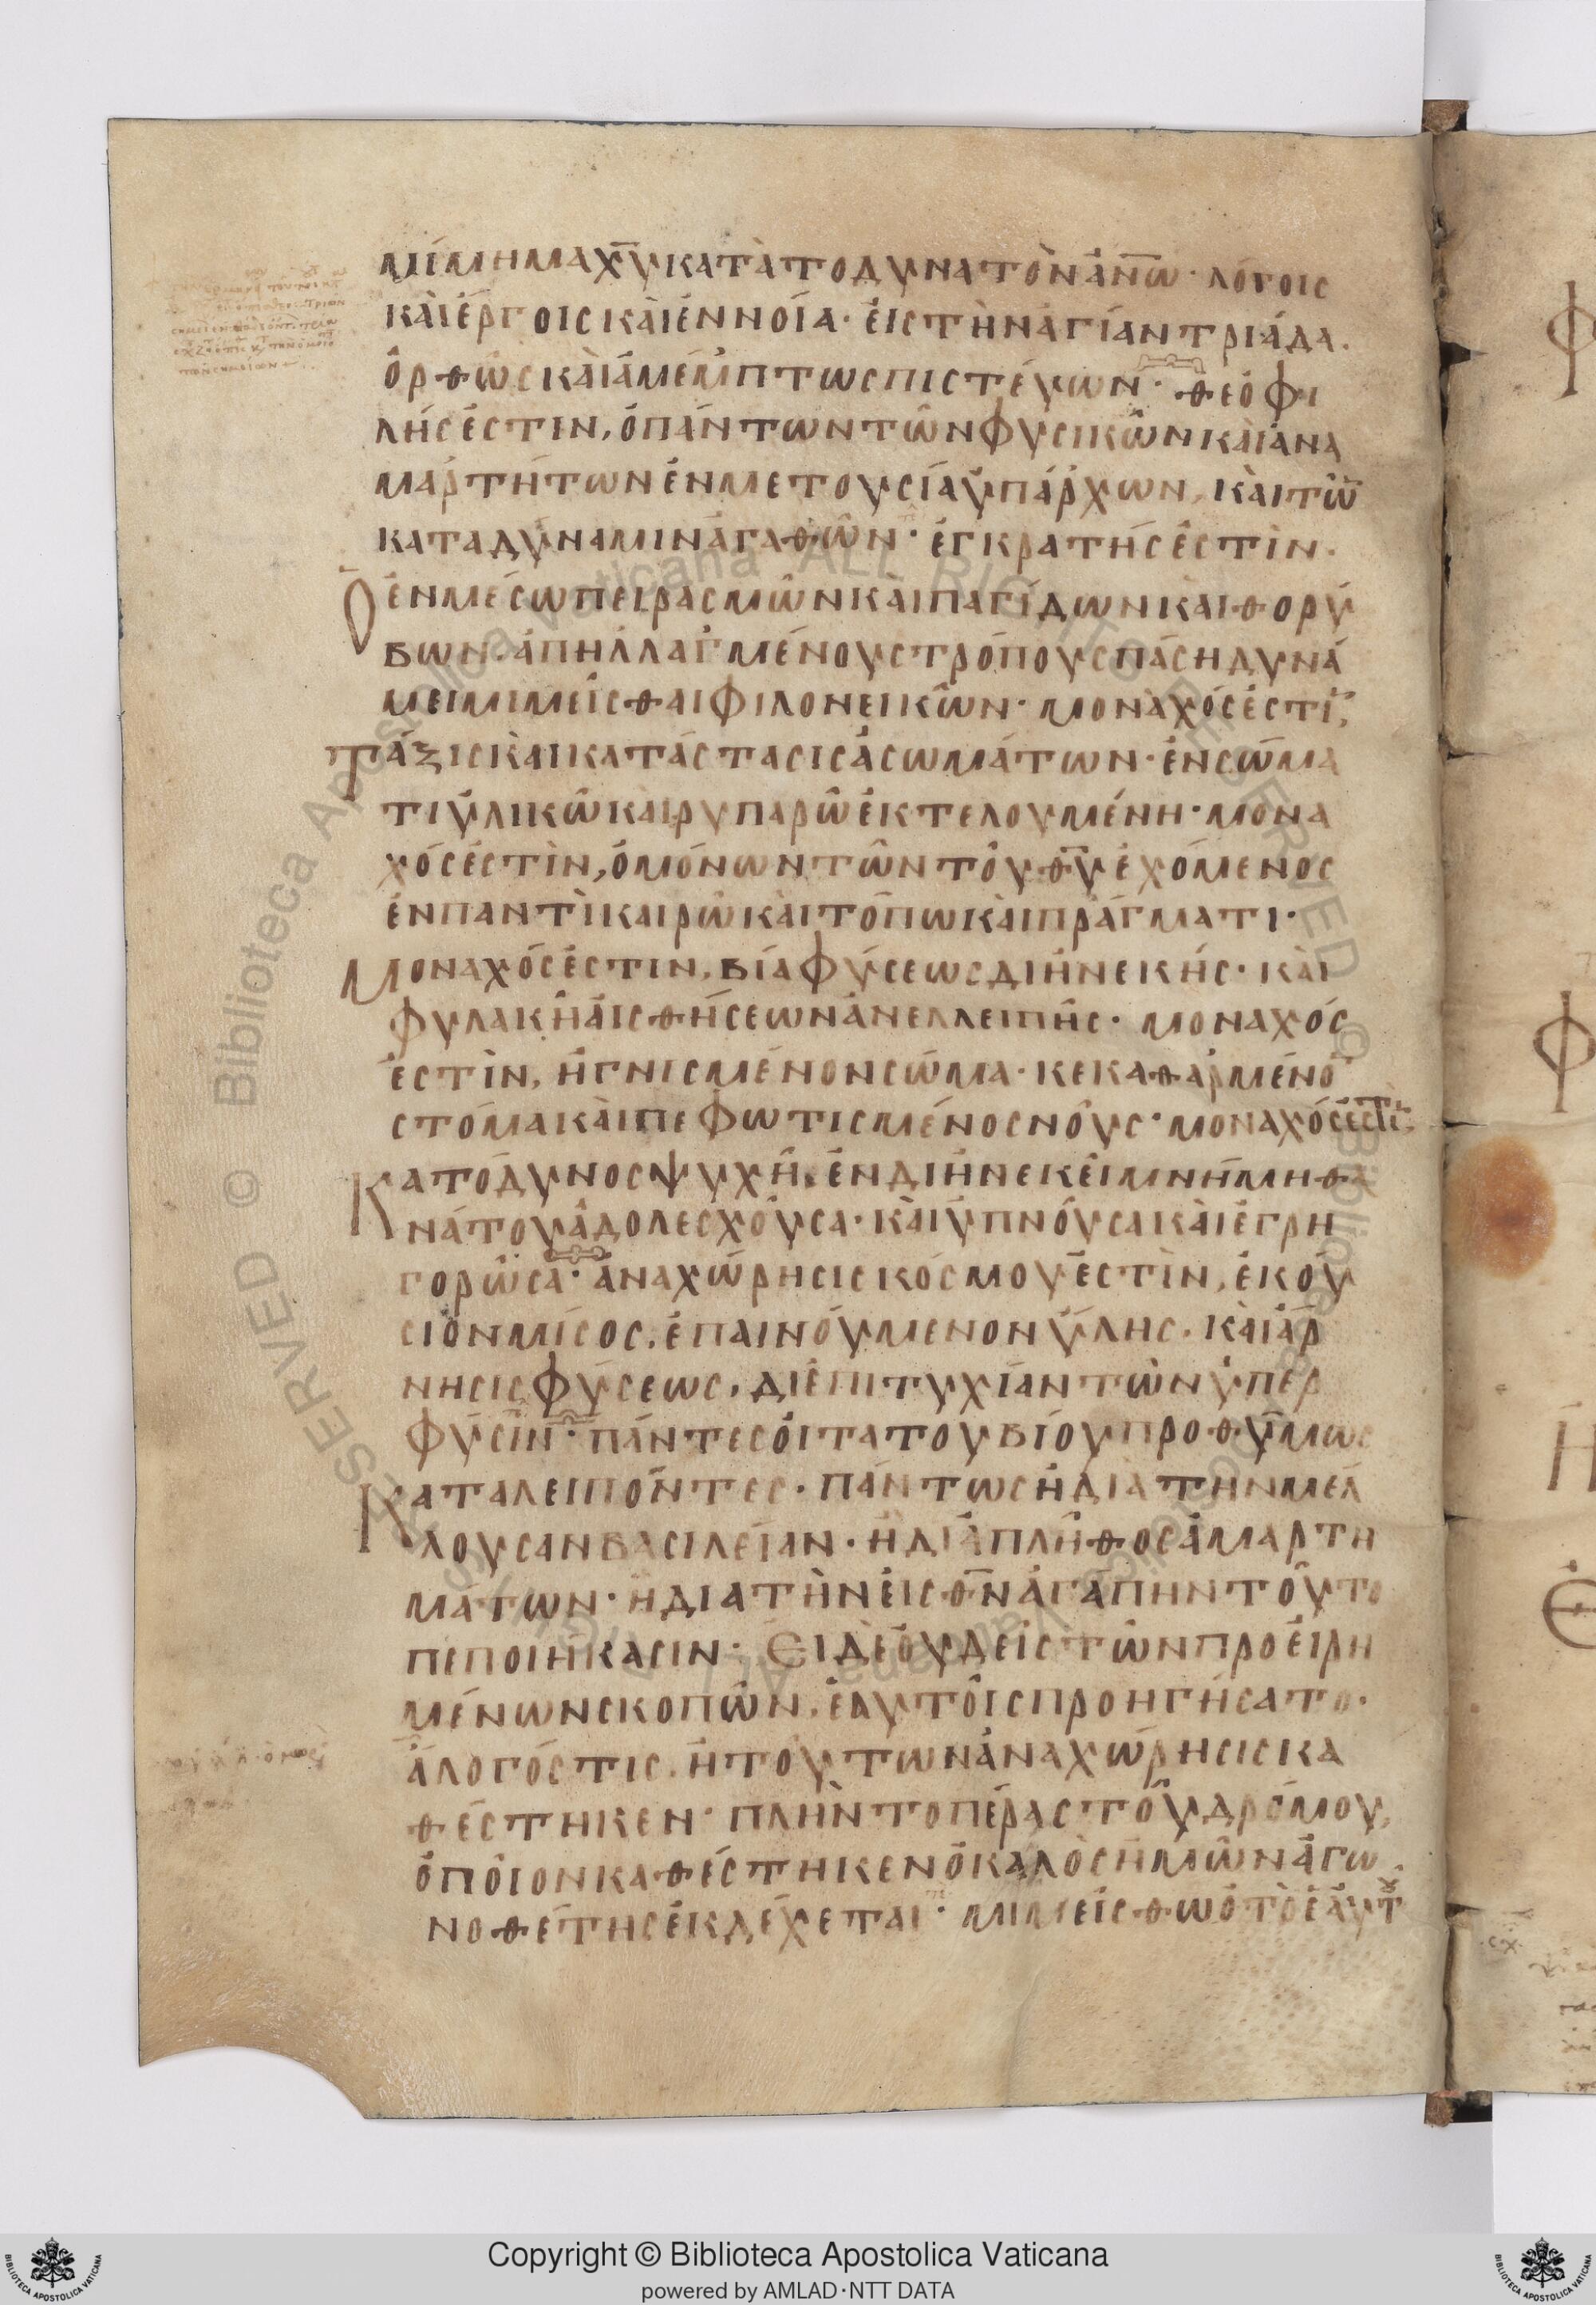 μίμημα χ̅υ̅ κατὰ τὸ δυνατὸν ἀν̅ω̅· λόγοις
καὶ ἔργοις καὶ ἐννοία· εἰς τὴν ἁγίαν τριάδα.
ὀρθῶς καὶ ἀμέμπτως πιστεύων· θεοφι
λής ἐστιν, ὁ πάντων τῶν φυσικῶν καὶ ἀνα
μαρτήτων ἐν μετουσία ὑπάρχων, καὶ τῶ̅
κατα δύναμιν ἀγαθῶν· ἐγκρατής ἐστὶν.
Ὁ ἐν μέσω πειρασμῶν καὶ παγίδων καὶ θορύ
βων· ἀπηλλαγμένους τρόπους πάση δυνά
μει μιμεῖσθαι φιλονεικῶν· μοναχός ἐστι̅,
Τάξις καὶ κατάστασις ἀσωμάτων· ἐν σώμα
τι ὑλικῶ καὶ ρυπαρῶ ἐκτελουμένη· μονα
χός ἐστὶν, ὁ μόνων τῶν τοῦ θ̅υ̅ ἐχόμενος
ἐν παντὶ καιρῶ καὶ τόπω καὶ πράγματι·
Μοναχός ἐστιν, βία φύσεως διηνεκής· καὶ
φυλακὴ αἰσθήσεων ἀνελλειπής· μοναχός
ἐστὶν, ἡγνισμένον σῶμα· κεκαθαρμένο̅
στόμα καὶ πεφωτισμένος νοῦς· μοναχός ἐστι̅,
Κατόδυνος ψυχὴ, ἐν διηνεκεῖ μνήμη θα
νάτου ἀδολεσχοῦσα· καὶ ὑπνοῦσα καὶ ἐγρη
γορῶσα· ἀναχώρησις κόσμου ἐστὶν, ἑκού
σιον μίσος, ἐπαινούμενον ὕλης· καὶ ἄρ
νησις φύσεως, δι ἐπιτυχίαν τῶν ὑπερ
φύσιν· πάντες οἱ τὰ τοῦ βίου προθύμως
Καταλειπόντες· πάντως ἢ διὰ τὴν μελ
λουσαν βασιλείαν· ἢ διὰ πλῆθος ἁμαρτη
μάτων· ἢ δια τὴν εἰς θ̅ν̅ ἀγάπην τοῦτο
πεποιήκασιν· Εἰ δὲ οὐδεὶς τῶν προειρη
μένων σκοπῶν, ἑαυτοῖς προηγήσατο·
ἄλογός τις, ἡ τούτων ἀναχώρησις κα
θέστηκεν· πλὴν τὸ πέρας τοῦ δρόμου,
ὁποῖον καθέστηκεν ὁ καλὸς ἡμῶν ἀγω
νοθέτης ἐκδέχεται· μιμείσθω ὁ τὸ ἑαυτ